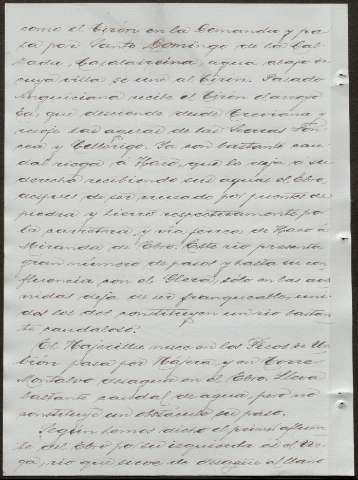 como el Tirón en la Demanda y pa
sa por Santo Domingo de la Cal
zada, Casalarreina, agua abajo de
cuya villa se une al Tirón. Pasado
Anguciana recibe el Tirón el arroyo
Ea, que desciende desde Treviana y
recoge las aguas de las Sierras
y Cellorigo. Ya con bastante cau
dal riega a Haro, que la deja a su
derecha recibiendo sus aguas el Ebro,
después de ser cruzado por puentes de
piedra y hierro respectivamente por
la carretera, y vía férrea de Haro a
Miranda de Ebro. Este río presenta
gran número de pasos y hasta su con
fluencia con el Glera, sólo en las ave
nidas deja de ser franqueable, uni
dos los dos constituyen un río bastan
te caudaloso.
El Najerilla nace en los Picos de Ur
bión pasa por Nájera, y en Torre
Montalvo desagua en el Ebro. Lleva
bastante caudal de agua, pero no
constituye un obstáculo su paso.
Según hemos dicho el primer afluen
te del Ebro por su izquierda es el
que de desagua al